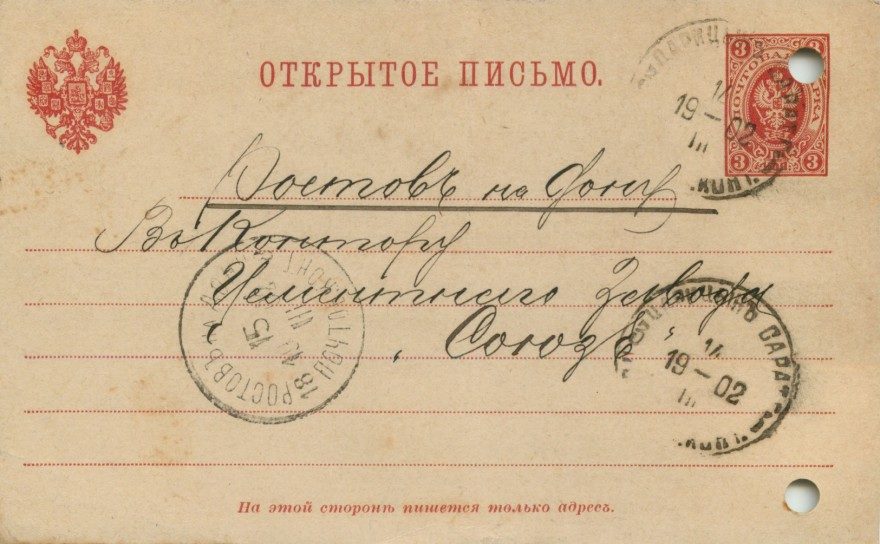 ОТКРЫТОЕ ПИСЬМО.
3 3
ПОЧТОВАЯ МАРКА
3 3
ЦАРИЦЫНЪ САРАТ.
14
19–02
III
.КОНТ.
Ростовъ на Дону
Въ Контору
Цементнаго Завода
„Союзъ“
РОСТОВЪ
15
III
ПОЧТ. КОНТ.
ЦАРИЦЫНЪ САРАТ.
14
19–02
III
.КОНТ.
На этой сторонѣ пишется только адресъ.